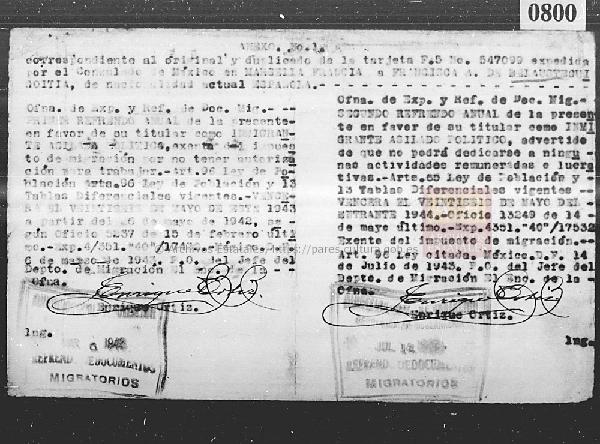 0800
ANEXO. No.1.
correspondiente al original y duplicado de la tarjeta F.5 No. 547099 expedida
por el Consulado de México en MARSELLA FRANCIA a FRANCISCA A. DE BELAUSTEGUI
GOITIA, de nacionalidad actual ESPAÑOLA.
Ofna. de Exp. y Ref. de Doc. Mig.-
PRIMER REFRENDO ANUAL de la presente
en favor de su titular como INMIGRAN-
TE ASILADO POLITICO, exenta del impues
to de migración por no tener autoriza
ción para trabajar.-Art.96 Ley de Po-
blación Arts.96 Ley de Población y 13
Tablas Diferenciales vigentes.-VENCE-
RA EL VEINTISEIS DE MAYO DE ESTE 1943
a partir del 26 de mayo de 1942, se-
gún Oficio 5237 de 15 de febrero últi
mo.-Exp.4/351."40"/
6 de marzo de 1943. P.O. del Jefe del
Depto. de Migración El Enc. de la
Ofna.
Enrique Ortiz.
lng.
1943
REFRENDO DE DOCUMENTOS
MIGRATORIOS
Ofna. de Exp. y Ref. de Doc. Mig.-
SEGUNDO REFRENDO ANUAL de la presen
te en favor de su titular como INMI
GRANTE ASILADO POLITICO, advertido
de que no podrá dedicarse a ningu-
nas actividades remuneradas e lucra
tivas.-Arts.65 Ley de Población y
13 Tablas Diferenciales vigentes
VENCERA EL VEINTISEIS DE MAYO DEL
ENTRANTE 1944.-Oficio 13249 de 14
de mayo último.-Exp.4351."40"/17532
Exento del impuesto de migración.-
Art. 96 Ley citada. México.D.F. 14
de Julio de 1943. P.O. del Jefe del
Depto. de Migración El Enc. de la
Ofna.
Enrique Ortiz.
lng.
JUL
REFRENDO DE DOCUMENTOS
MIGRATORIOS